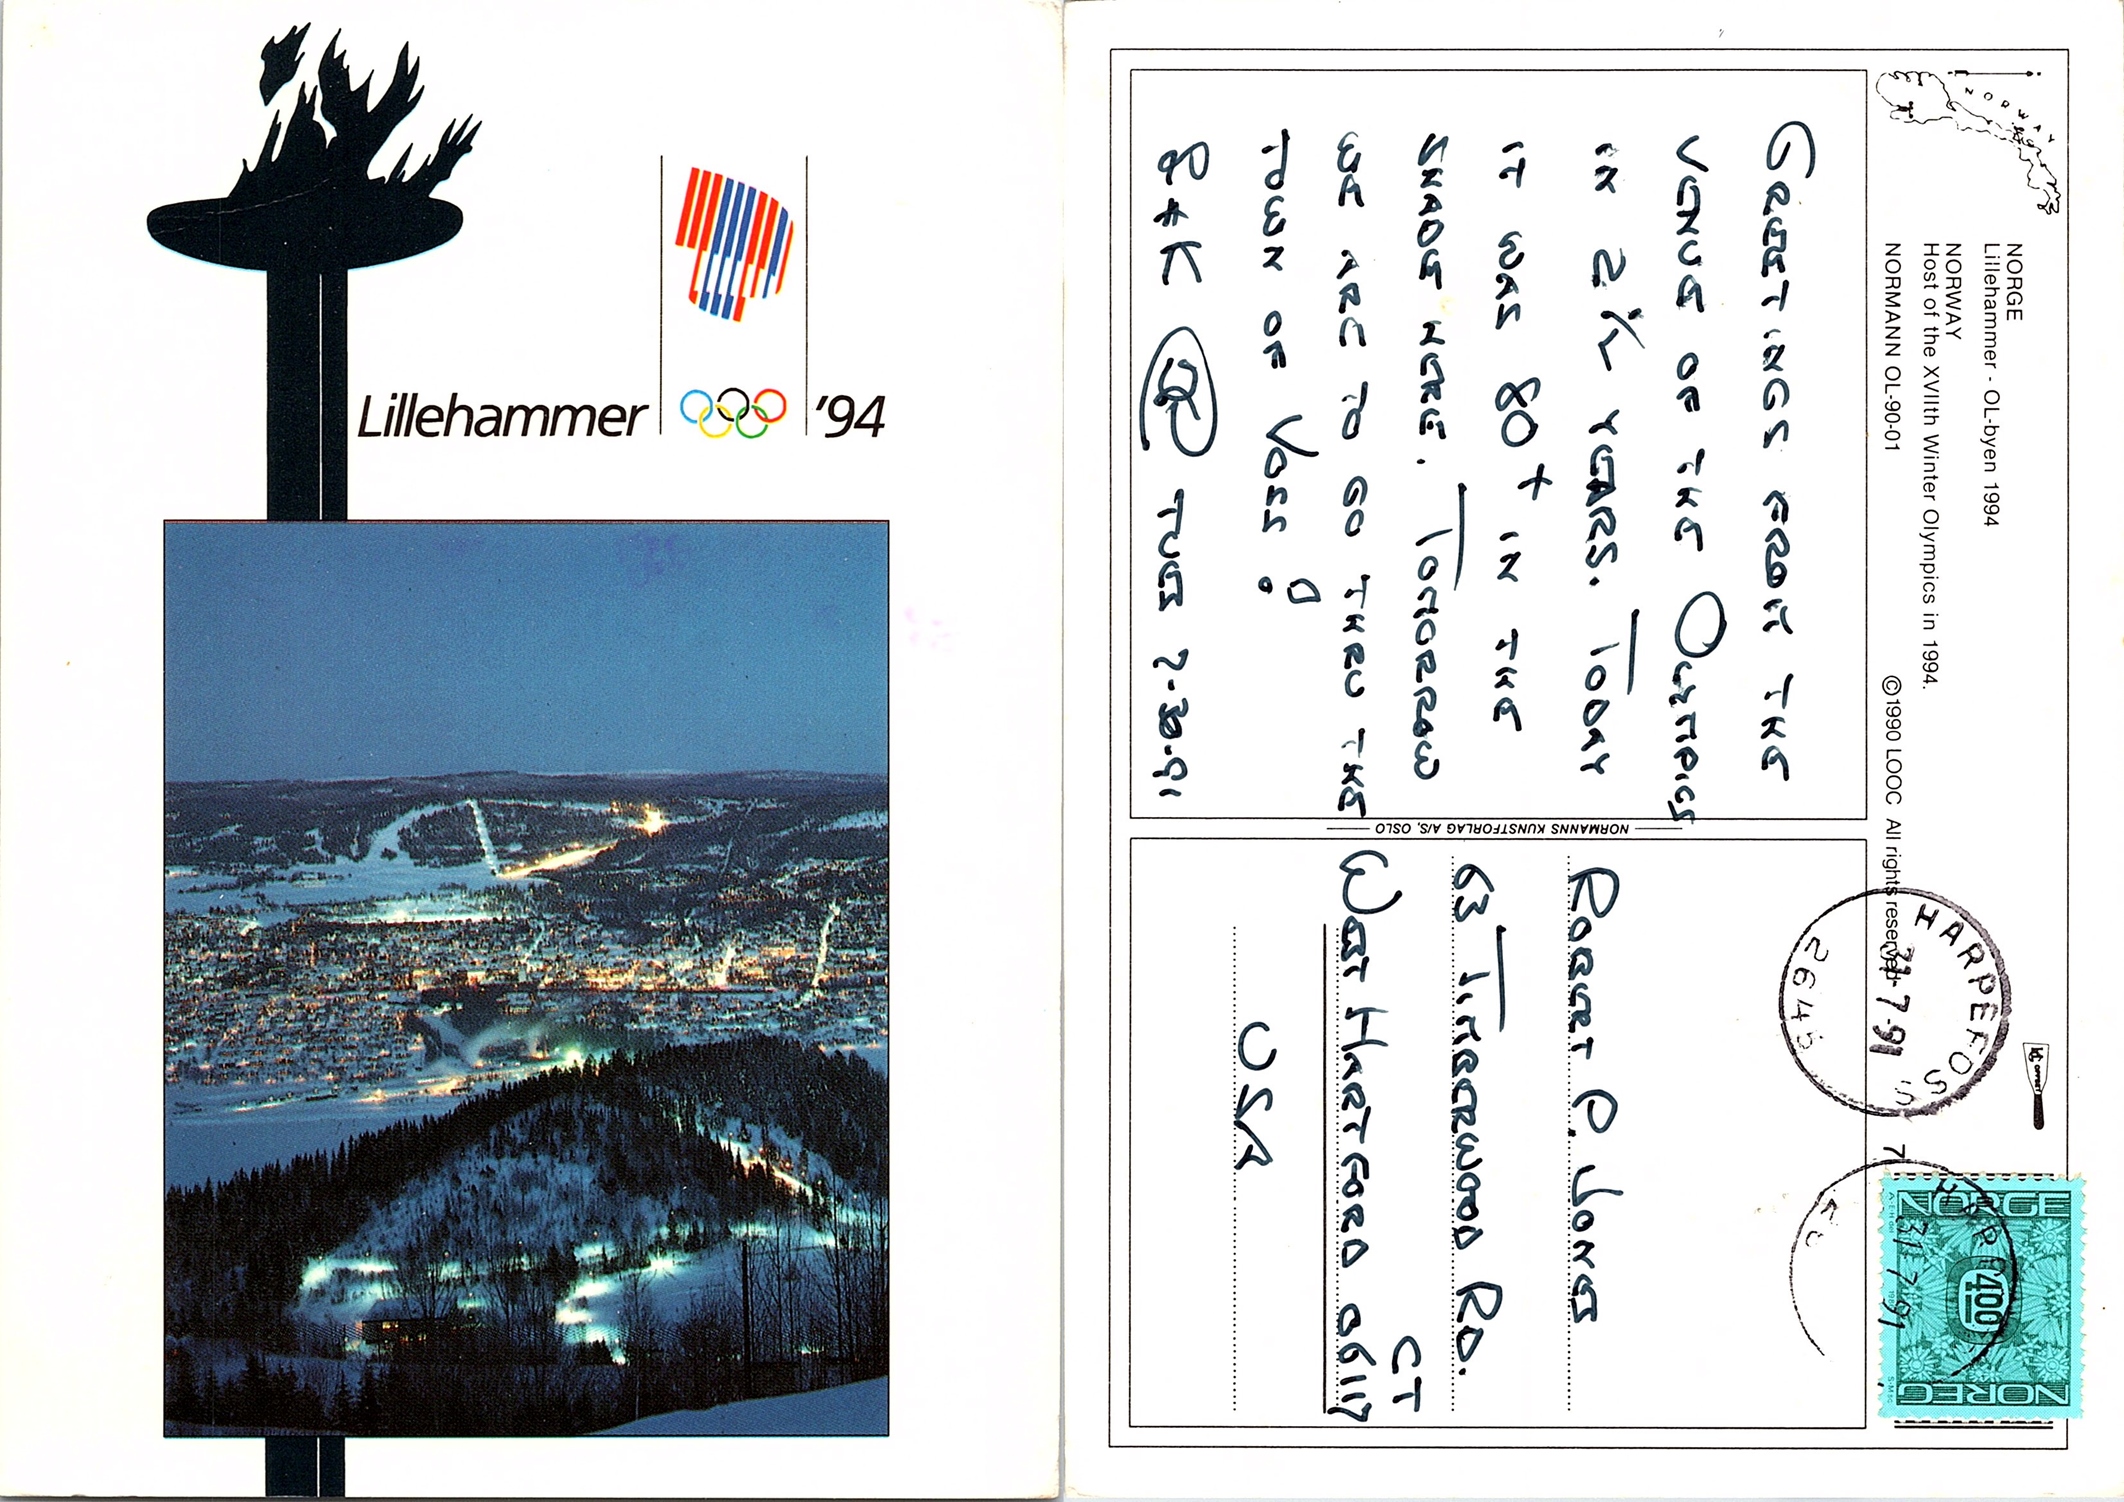 Lillehammer '94
NORWAY
NORGE
Lillehammer - OL-byen 1994
NORWAY
Host of the XVIIth Winter Olympics in 1994.
NORMANN OL-90-01
©1990 LOOC All rights reserved
GREETINGS FROM THE
VENUE OF THE OLYMPICS
IN 2½ YEARS. TODAY
IT WAS 80+ IN THE
SHADE HERE. TOMORROW
WE ARE TO GO THRU THE
TOWN OF VOSS!
TUES 7-30-91
NORMANNS KUNSTFORLAG A/S, OSLO
ROBERT P. JONES
63 TIMBERWOOD RD.
WEST HARTFORD 06117
CT
USA
HARPEFOSS
31-7-91
2645
NORGE
400
NOREG
31-7-91